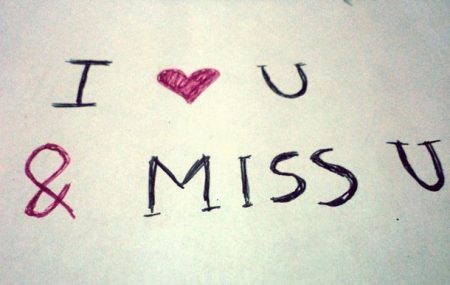 I ♥ U
& MISS U